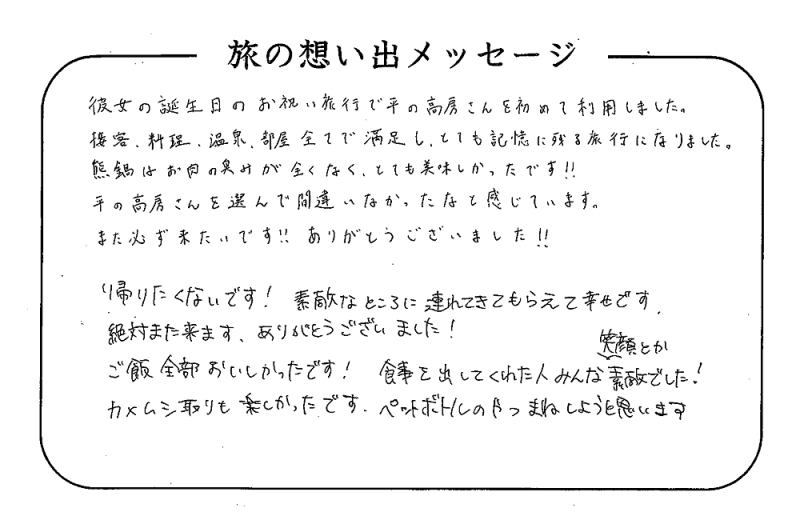 旅の想い出メッセージ
彼女の誕生日のお祝い旅行で平の高房さんを初めて利用しました。
接客、料理、温泉、部屋全てで満足し、とても記憶に残る旅行になりました。
熊鍋はお肉の臭みが全くなく、とても美味しかったです!!
平の高房さんを選んで間違いなかったなと感じています。
また必ず来たいです!! ありがとうございました!!
帰りたくないです! 素敵なところに連れてきてもらえて幸せです。
絶対また来ます、ありがとうございました!
笑顔とか
ご飯全部おいしかったです! 食事を出してくれた人みんな素敵でした!
カメムシ取りも楽しかったです、ペットボトルのやつまねしようと思います